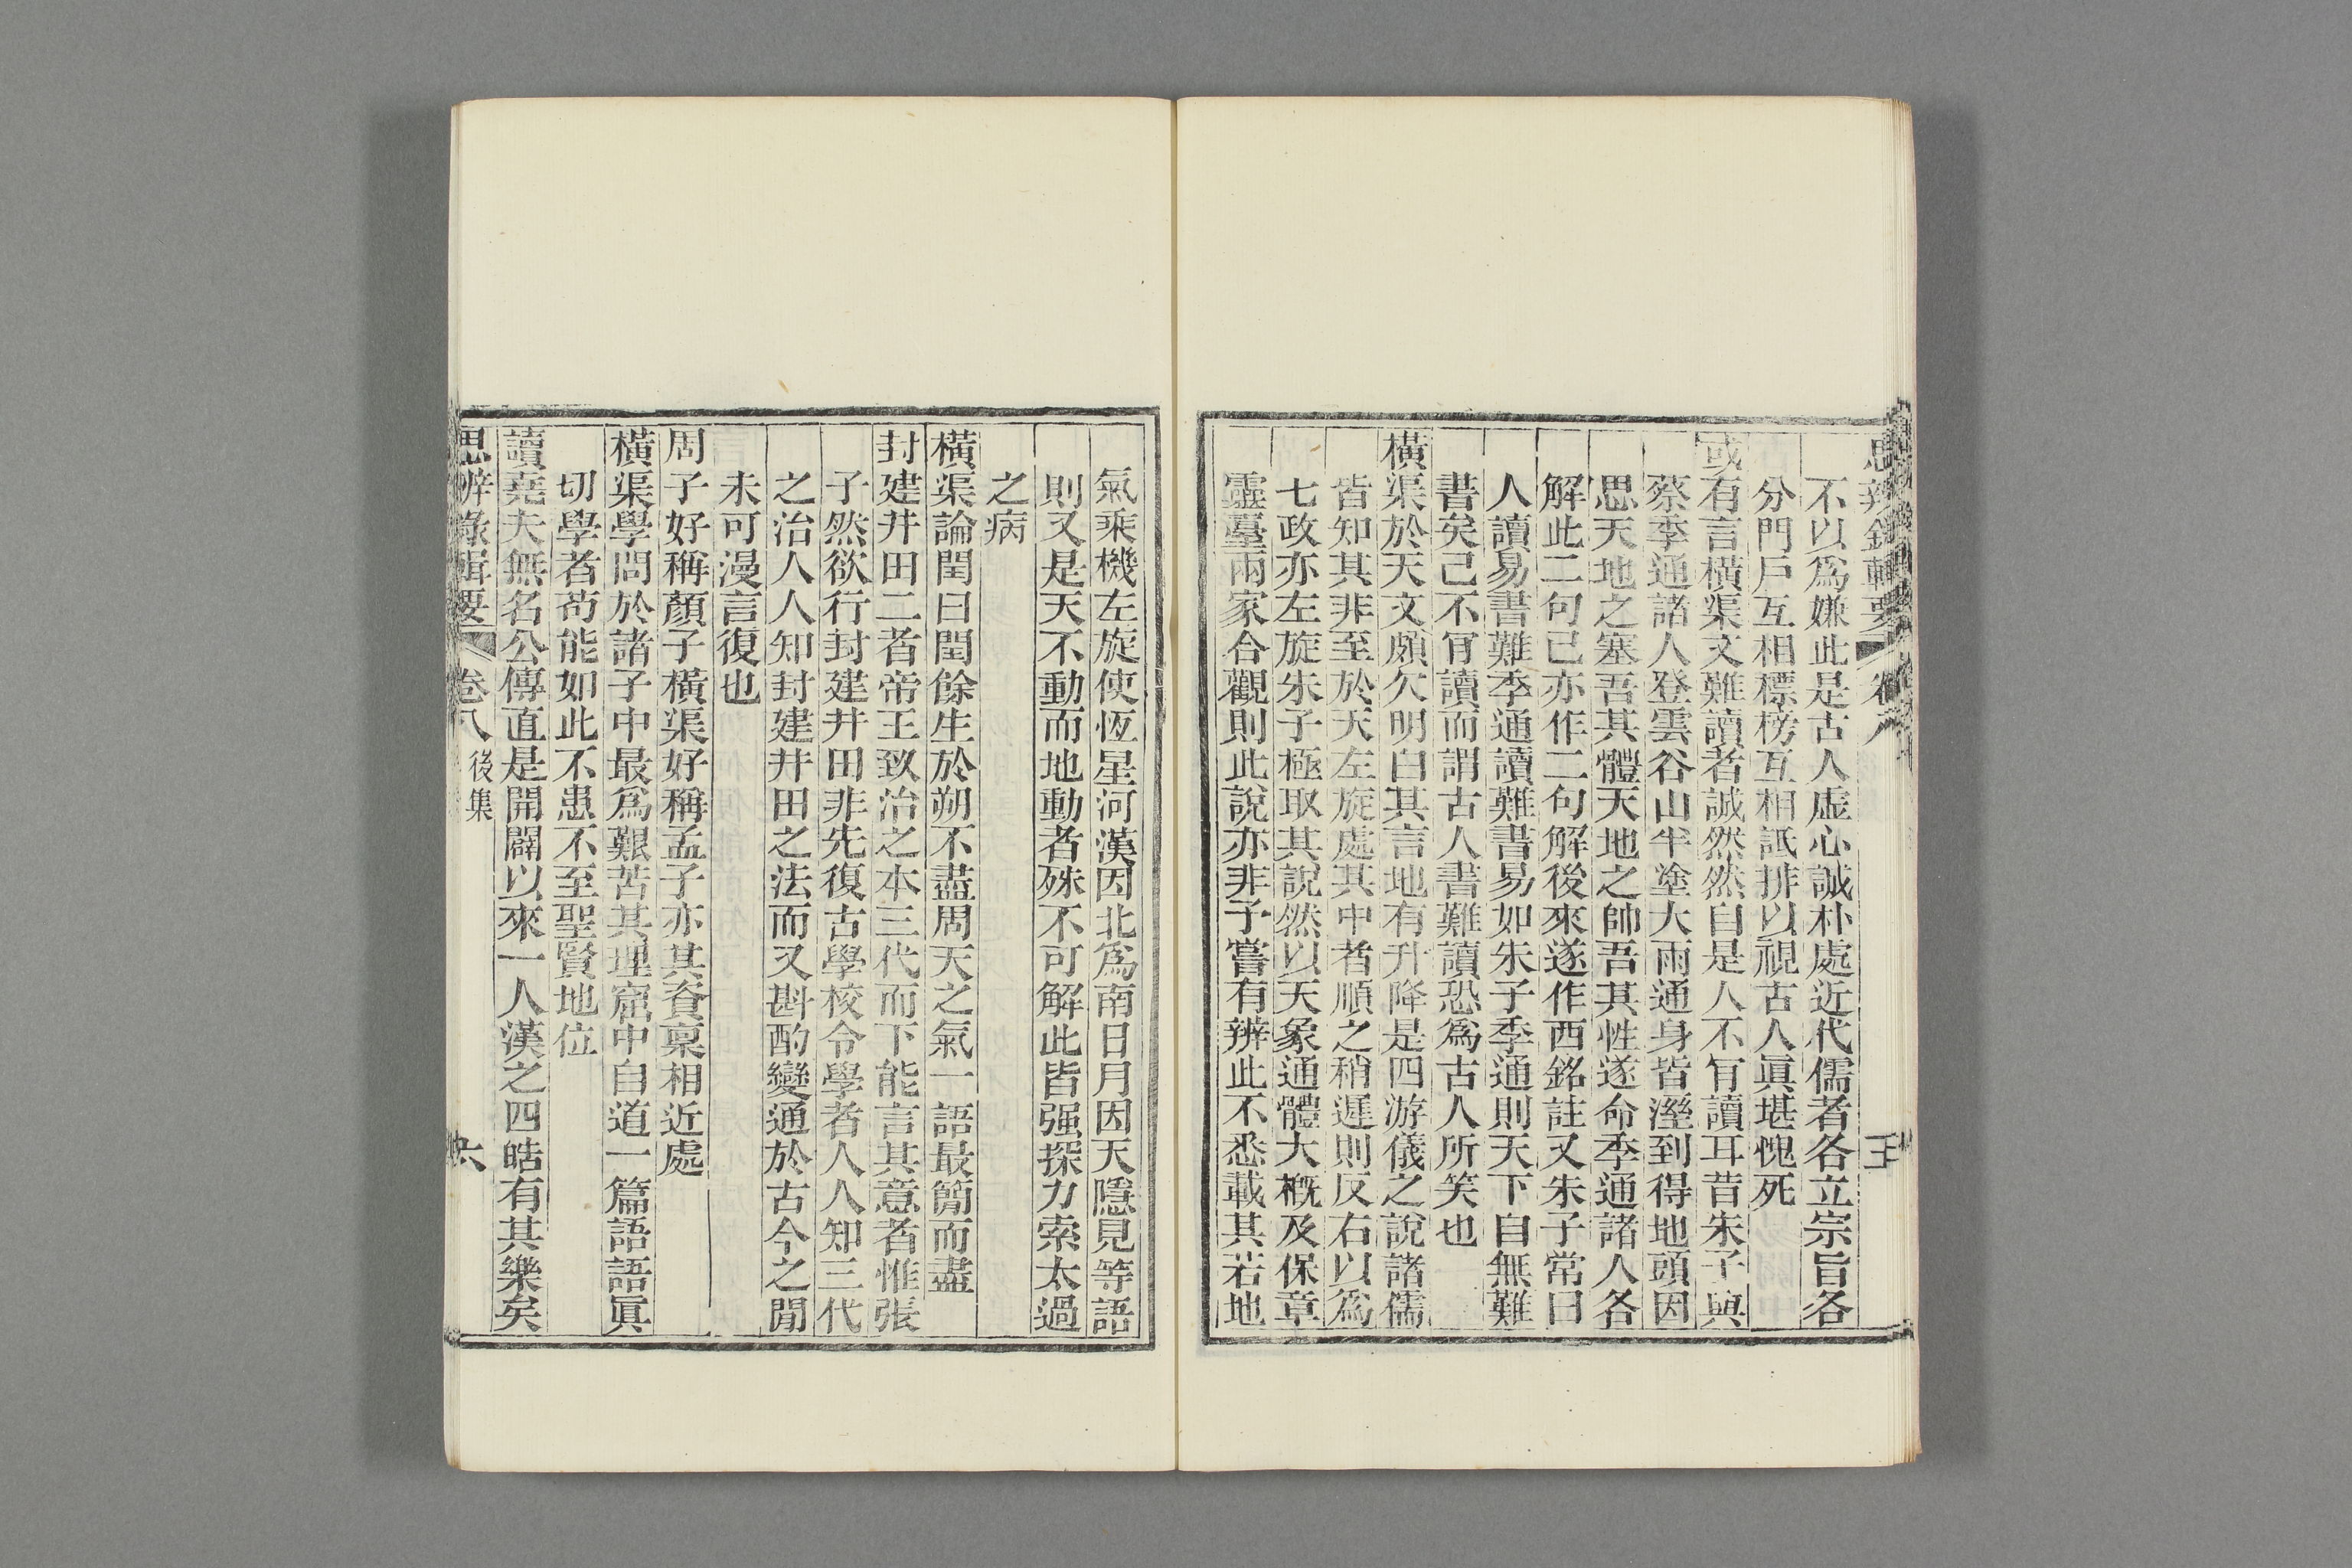 思辨錄輯要 卷八 五
不以爲嫌此是古人虛心誠朴處近代儒者各立宗旨各
分門戶互相標榜互相詆排以視古人眞堪愧死
或有言橫渠文難讀者誠然然自是人不肎讀耳昔朱子與
蔡季通諸人登雲谷山半塗大雨通身皆溼到得地頭因
思天地之塞吾其體天地之帥吾其性遂命季通諸人各
解此二句已亦作二句解後來遂作西銘註又朱子常曰
人讀易書難季通讀難書易如朱子季通則天下自無難
書矣己不肎讀而謂古人書難讀恐爲古人所笑也
橫渠於天文頗欠明白其言地有升降是四游儀之說諸儒
皆知其非至於天左旋處其中者順之稍遲則反右以爲
七政亦左旋朱子極取其說然以天象通體大概及保章
靈臺兩家合觀則此說亦非予嘗有辨此不悉載其若地
氣乘機左旋使恆星河漢因北爲南日月因天隱見等語
則又是天不動而地動者殊不可解此皆强探力索太過
之病
橫渠論閏曰閏餘生於朔不盡周天之氣一語最簡而盡
封建井田二者帝王致治之本三代而下能言其意者惟張
子然欲行封建井田非先復古學校令學者人人知三代
之治人人知封建井田之法而又斟酌變通於古今之閒
未可漫言復也
周子好稱顏子橫渠好稱孟子亦其資稟相近處
橫渠學問於諸子中最爲艱苦其理窟中自道一篇語語眞
切學者苟能如此不患不至聖賢地位
讀堯夫無名公傳直是開闢以來一人漢之四皓有其樂矣
思辨錄輯要 卷八 後集 六